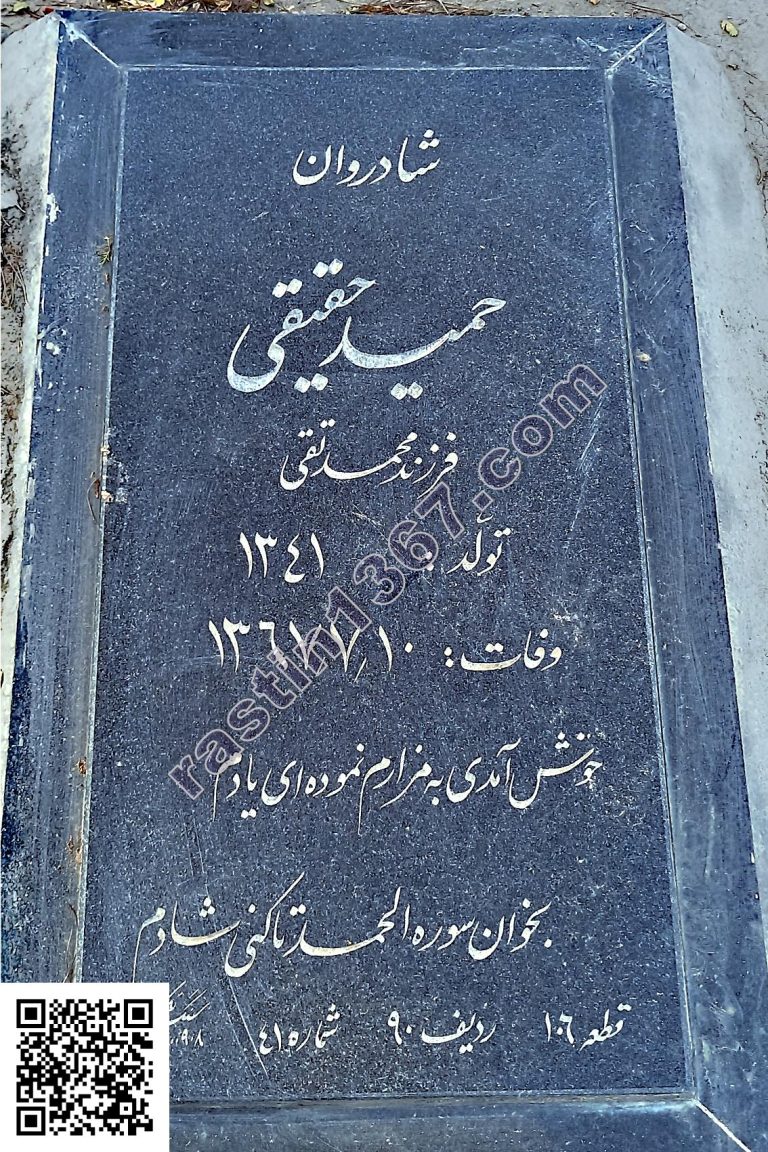 شادروان
حمید حقیقی
فرزند محمد تقی
تولّد : ۱۳٤۱
وفات : ۱۳٦۱/۷/۱۰
خوش آمدی به مزارم نموده ای یادم
بخوان سوره الحمد تا کنی شادم
قطعه ۱۰٦ ردیف ۹۰ شماره ٤۱
rastin1367.com